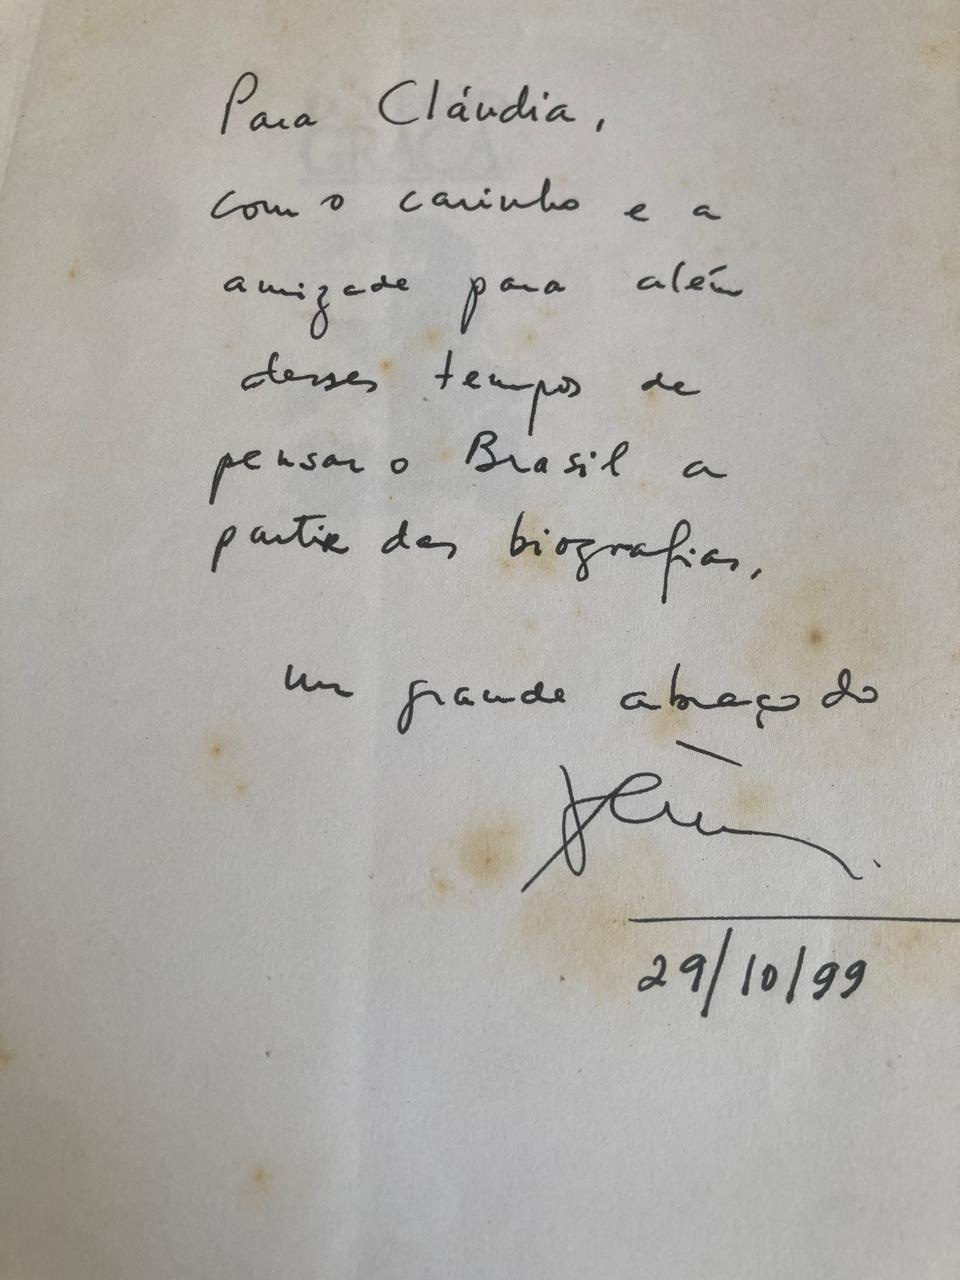 Para Cláudia,
com o carinho e a
amizade para além
desses tempos de
pensar o Brasil a
partir das biografias.
um grande abraço do
29/10/99